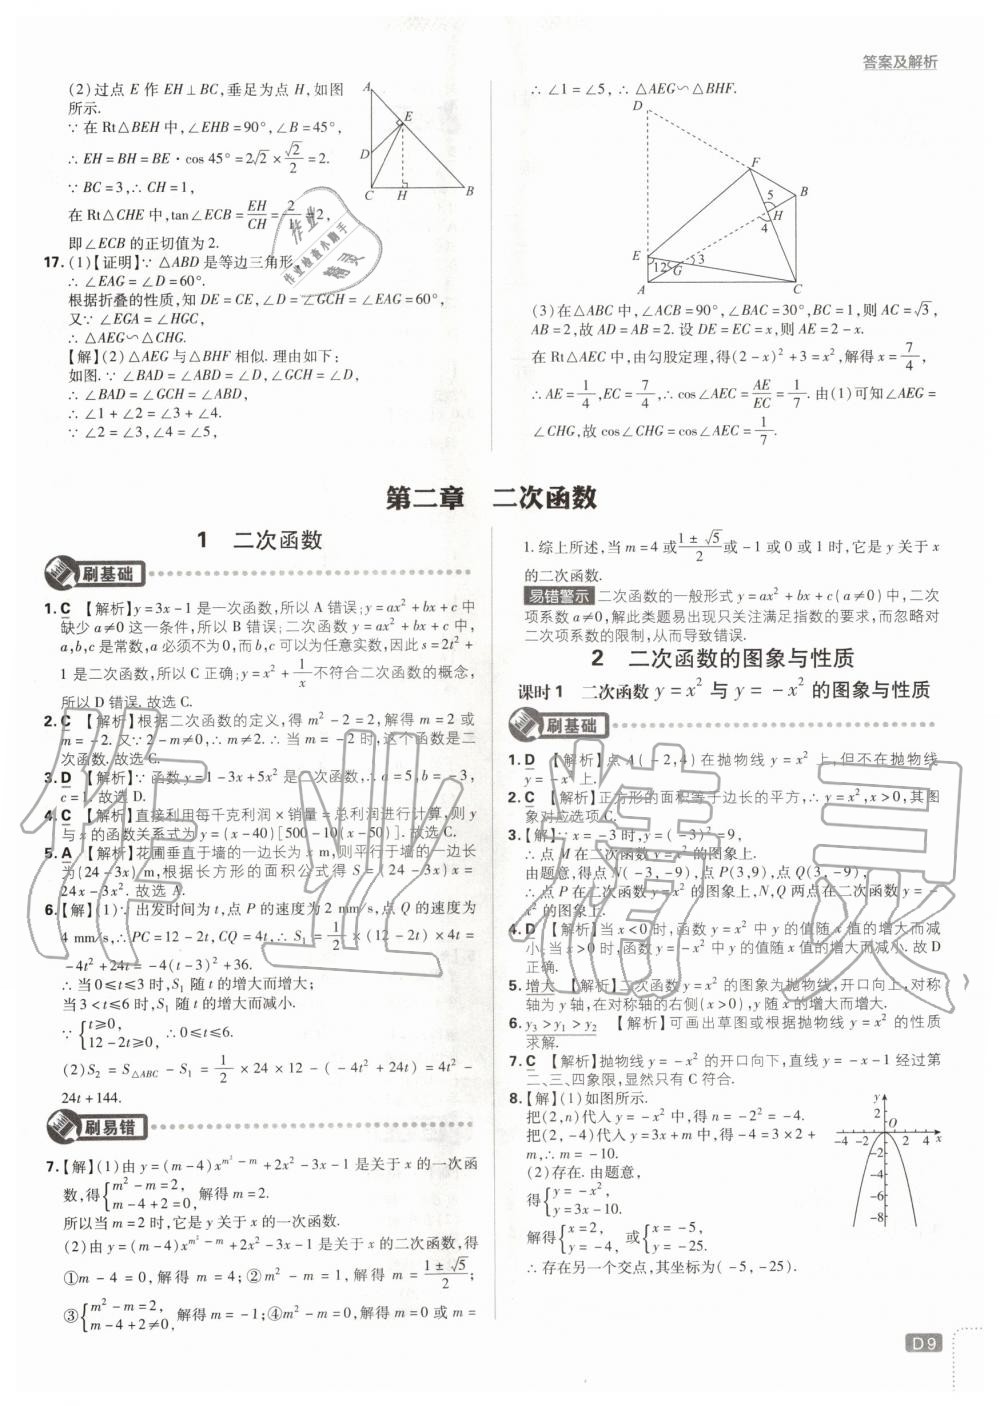 答案及解析
(2)过点 E 作 EH⊥BC,垂足为点 H,如图
所示.
∵ 在 Rt△BEH 中,∠EHB=90°,∠B=45°,
∴ EH=BH=BE·cos 45°=2√2×√2/2=2.
∵ BC=3,∴ CH=1,
在 Rt△CHE 中,tan∠ECB=EH/CH=2/1=2,
即∠ECB 的正切值为 2.
A
E
D
C H B
17.(1)【证明】∵ △ABD 是等边三角形,
∴ ∠EAG=∠D=60°.
根据折叠的性质,知 DE=CE,∠D=∠GCH=∠EAG=60°,
又∵ ∠EGA=∠HGC,
∴ △AEG∽△CHG.
【解】(2)△AEG 与△BHF 相似. 理由如下:
如图.∵ ∠BAD=∠ABD=∠D,∠GCH=∠D,
∴ ∠BAD=∠GCH=∠ABD,
∴ ∠1+∠2=∠3+∠4.
∵ ∠2=∠3,∠4=∠5,
∴ ∠1=∠5,∴ △AEG∽△BHF.
D
F
B
5
H
4
E 1 2 G 3
A C
(3)在△ABC 中,∠ACB=90°,∠BAC=30°,BC=1,则 AC=√3,
AB=2,故 AD=AB=2. 设 DE=EC=x,则 AE=2-x.
在 Rt△AEC 中,由勾股定理,得(2-x)²+3=x²,解得 x=7/4,
∴ AE=1/4,EC=7/4,∴ cos∠AEC=AE/EC=1/7. 由(1)可知∠AEG=
∠CHG,故 cos∠CHG=cos∠AEC=1/7.
第二章 二次函数
1 二次函数
刷基础
1. C 【解析】y=3x-1 是一次函数,所以 A 错误;y=ax²+bx+c 中
缺少 a≠0 这一条件,所以 B 错误;二次函数 y=ax²+bx+c 中,
a,b,c 是常数,a 必须不为 0,而 b,c 可以为任意实数,因此 s=2t²+
1 是二次函数,所以 C 正确;y=x²+1/x 不符合二次函数的概念,
所以 D 错误. 故选 C.
2. C 【解析】根据二次函数的定义,得 m²-2=2,解得 m=2 或
m=-2. 又∵ 2-m≠0,∴ m≠2. ∴ 当 m=-2 时,这个函数是二
次函数. 故选 C.
3. D 【解析】∵ 函数 y=1-3x+5x² 是二次函数,∴ a=5,b=-3,
c=1. 故选 D.
4. C 【解析】直接利用每千克利润×销量=总利润进行计算,则 y
与 x 的函数关系式为 y=(x-40)[500-10(x-50)]. 故选 C.
5. A 【解析】花圃垂直于墙的一边长为 x m,则平行于墙的一边长
为(24-3x) m,根据长方形的面积公式得 S=(24-3x)x=
24x-3x². 故选 A.
6.【解】(1)∵ 出发时间为 t,点 P 的速度为 2 mm/s,点 Q 的速度为
4 mm/s,∴ PC=12-2t,CQ=4t,∴ S₁=1/2×(12-2t)×4t=
-4t²+24t=-4(t-3)²+36.
∴ 当 0≤t≤3 时,S₁ 随 t 的增大而增大;
当 3<t≤6 时,S₁ 随 t 的增大而减小.
∵ {t≥0, 12-2t≥0, ∴ 0≤t≤6.
(2)S₂=S△ABC-S₁=1/2×24×12-(-4t²+24t)=4t²-
24t+144.
刷易错
7.【解】(1)由 y=(m-4)x^(m²-m)+2x²-3x-1 是关于 x 的一次函
数,得{m²-m=2, m-4+2=0, 解得 m=2.
所以当 m=2 时,它是 y 关于 x 的一次函数.
(2)由 y=(m-4)x^(m²-m)+2x²-3x-1 是关于 x 的二次函数,得
①m-4=0,解得 m=4;②m²-m=1,解得 m=(1±√5)/2;
③{m²-m=2, m-4+2≠0, 解得 m=-1;④m²-m=0,解得 m=0 或 m=
1. 综上所述,当 m=4 或(1±√5)/2或-1 或 0 或 1 时,它是 y 关于 x
的二次函数.
易错警示 二次函数的一般形式 y=ax²+bx+c(a≠0)中,二次
项系数 a≠0,解此类题易出现只关注满足指数的要求,而忽略对
二次项系数的限制,从而导致错误.
2 二次函数的图象与性质
课时 1 二次函数 y=x² 与 y=-x² 的图象与性质
刷基础
1. D 【解析】点 A(-2,4)在抛物线 y=x² 上,但不在抛物线
y=-x² 上.
2. C 【解析】正方形的面积等于边长的平方,∴ y=x²,x>0,其图
象对应选项 C.
3.【解】∵ x=-3 时,y=(-3)²=9,
∴ 点 M 在二次函数 y=x² 的图象上.
由题意,得点 N(-3,-9),点 P(3,9),点 Q(3,-9),
∴ 点 P 在二次函数 y=x² 的图象上,N,Q 两点在二次函数 y=-
x² 的图象上.
4. D 【解析】当 x<0 时,函数 y=x² 中 y 的值随 x 值的增大而减
小;当 x>0 时,函数 y=-x² 中 y 的值随 x 值的增大而减小. 故 D
正确.
5. 增大 【解析】二次函数 y=x² 的图象为抛物线,开口向上,对称
轴为 y 轴,在对称轴的右侧(x>0),y 随 x 的增大而增大.
6. y₃>y₁>y₂ 【解析】可画出草图或根据抛物线 y=x² 的性质
求解.
7. C 【解析】抛物线 y=-x² 的开口向下,直线 y=-x-1 经过第
二、三、四象限,显然只有 C 符合.
8.【解】(1)如图所示.
把(2,n)代入 y=-x² 中,得 n=-2²=-4.
把(2,-4)代入 y=3x+m 中,得-4=3×2+
m,∴ m=-10.
(2)存在. 由题意,
得{y=-x², y=3x-10.
解得{x=2, y=-4, 或{x=-5, y=-25.
∴ 存在另一个交点,其坐标为(-5,-25).
y
2
O
-4 -2 2 4 x
-2
-4
-6
-8
作业
作业检查小助手
精灵
作业精灵
D9